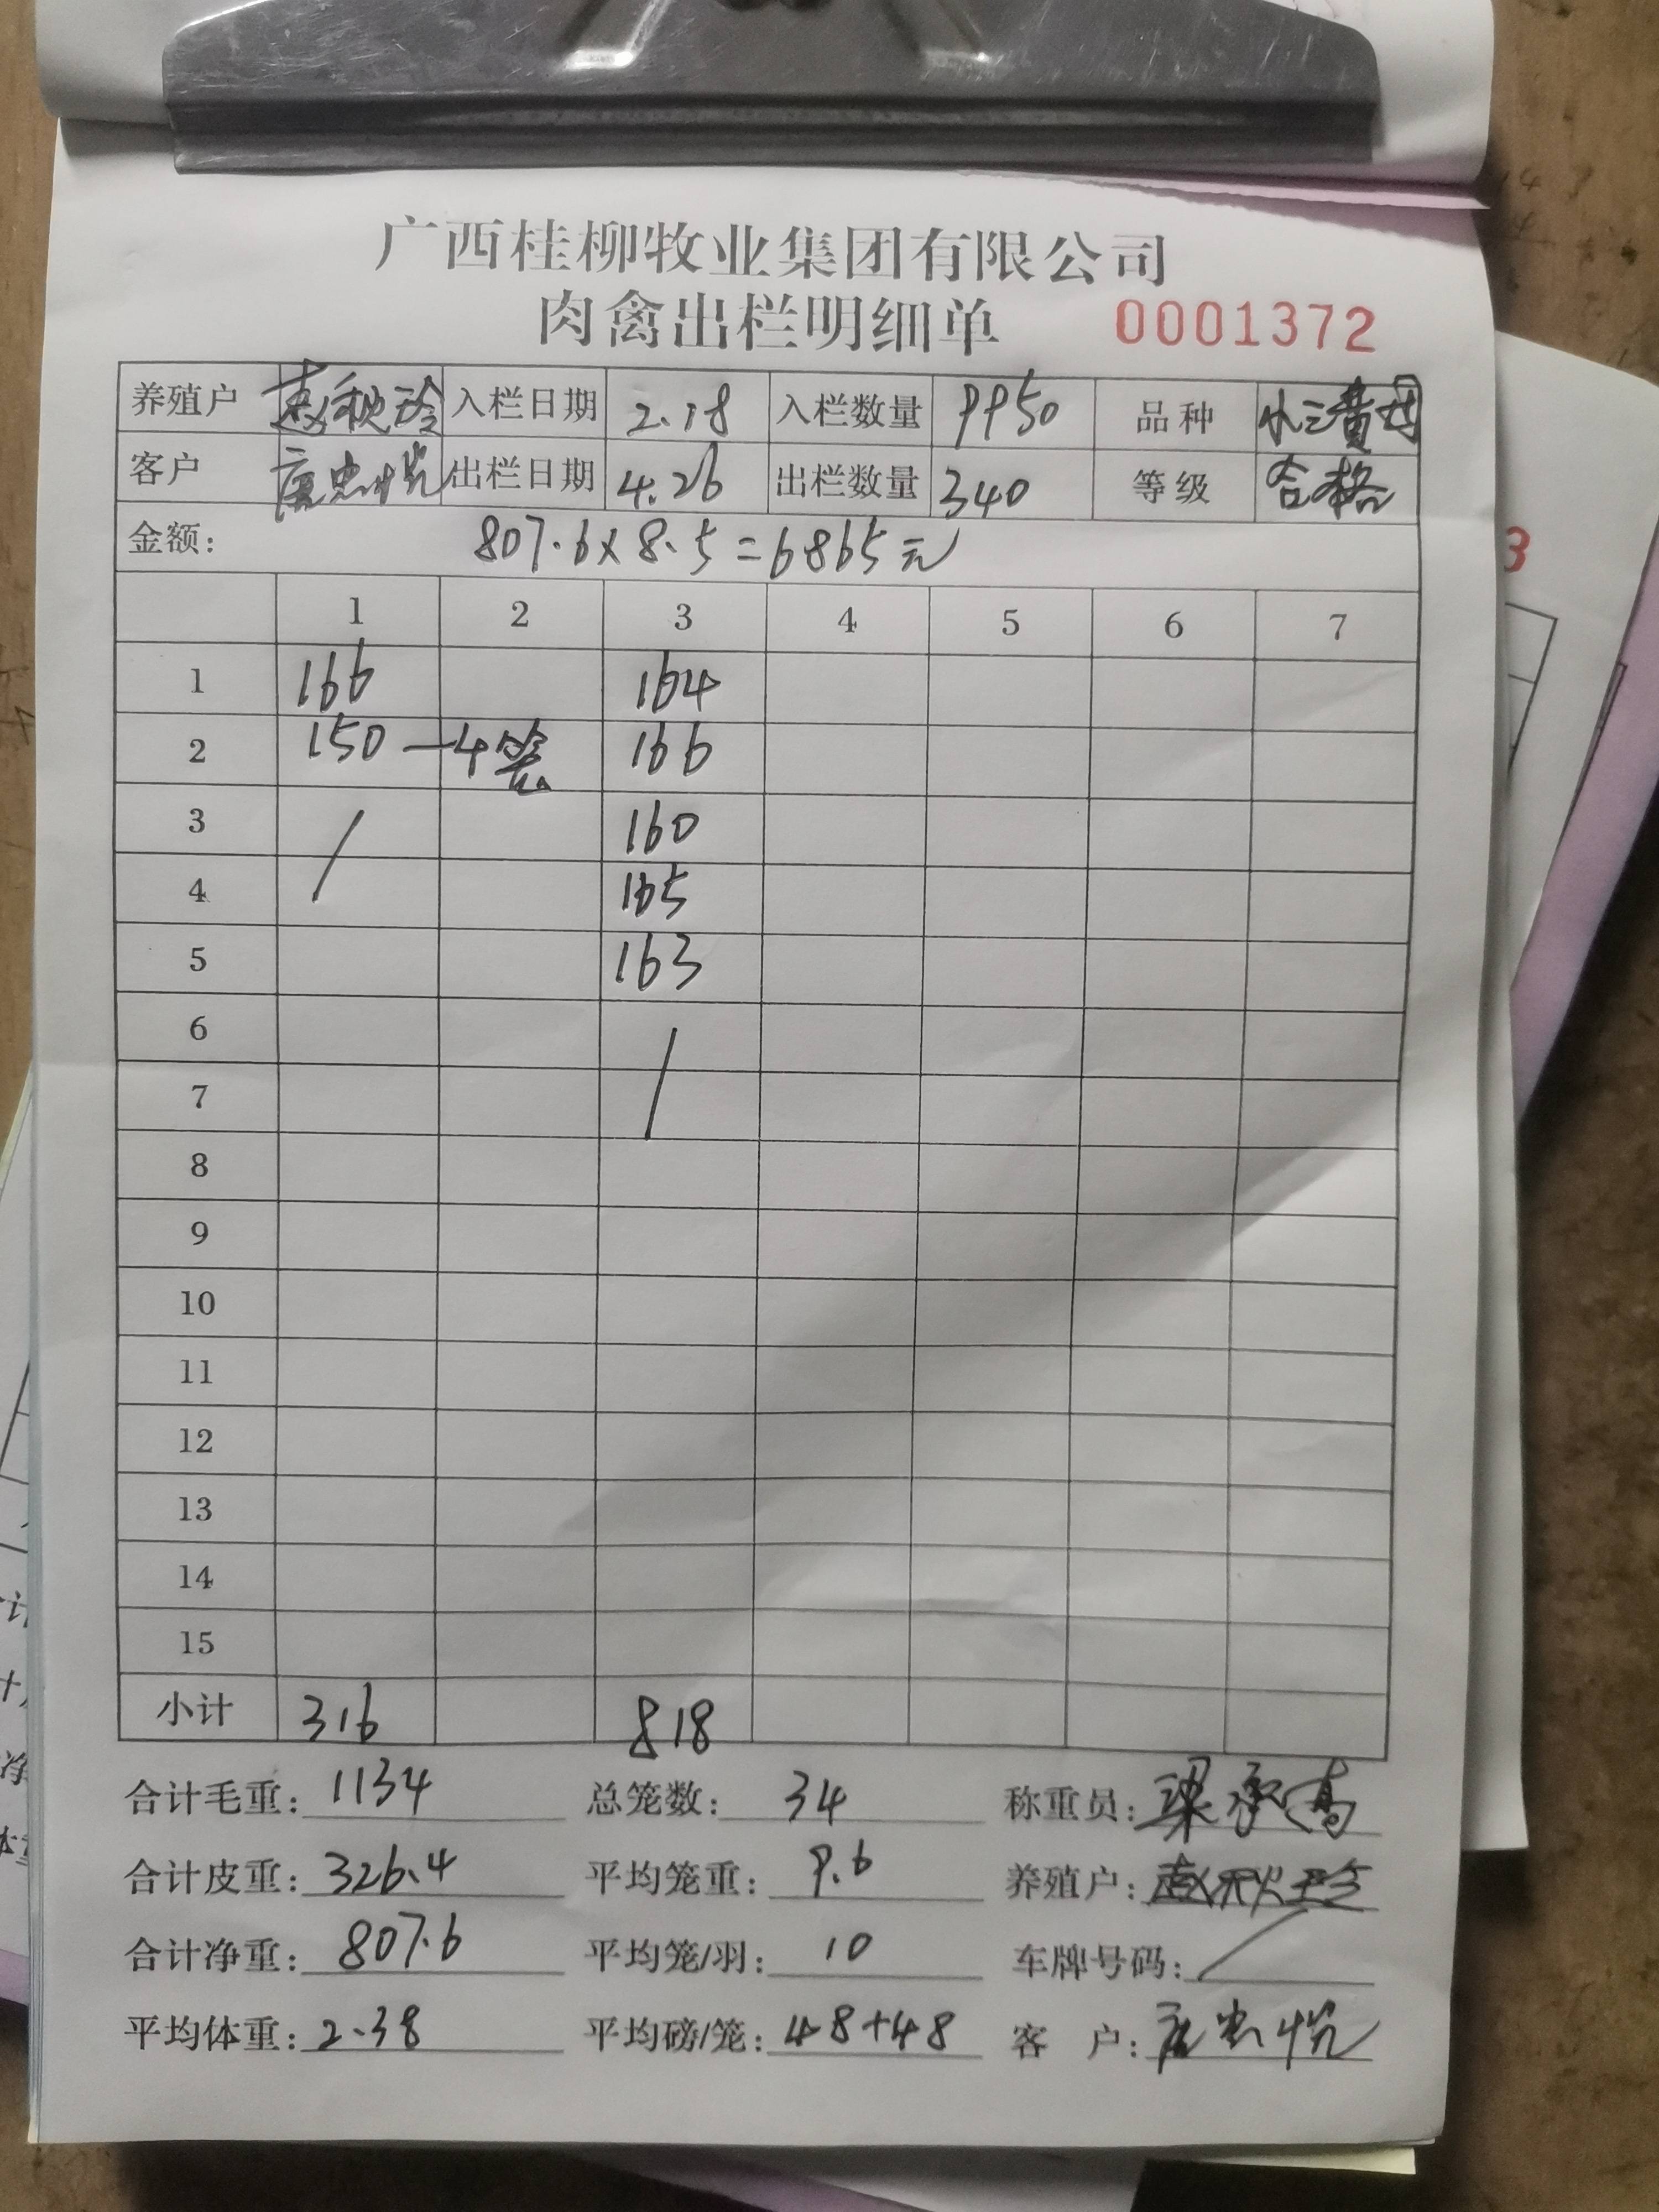 广西桂柳牧业集团有限公司
肉禽出栏明细单 0001372
养殖户 赵秋玲 入栏日期 2.18 入栏数量 9950 品种 小三黄
客户 庞忠悦 出栏日期 4.26 出栏数量 340 等级 合格
金额: 807.6×8.5=6865元
1 2 3 4 5 6 7
1 166 164
2 150 —4笼 166
3 / 160
4 165
5 163
6 /
7
8
9
10
11
12
13
14
15
小计 316 818
合计毛重: 1134 总笼数: 34 称重员: 梁承高
合计皮重: 326.4 平均笼重: 9.6 养殖户: 赵秋玲
合计净重: 807.6 平均笼/羽: 10 车牌号码: /
平均体重: 2.38 平均磅/笼: 48+48 客 户: 庞忠悦
3